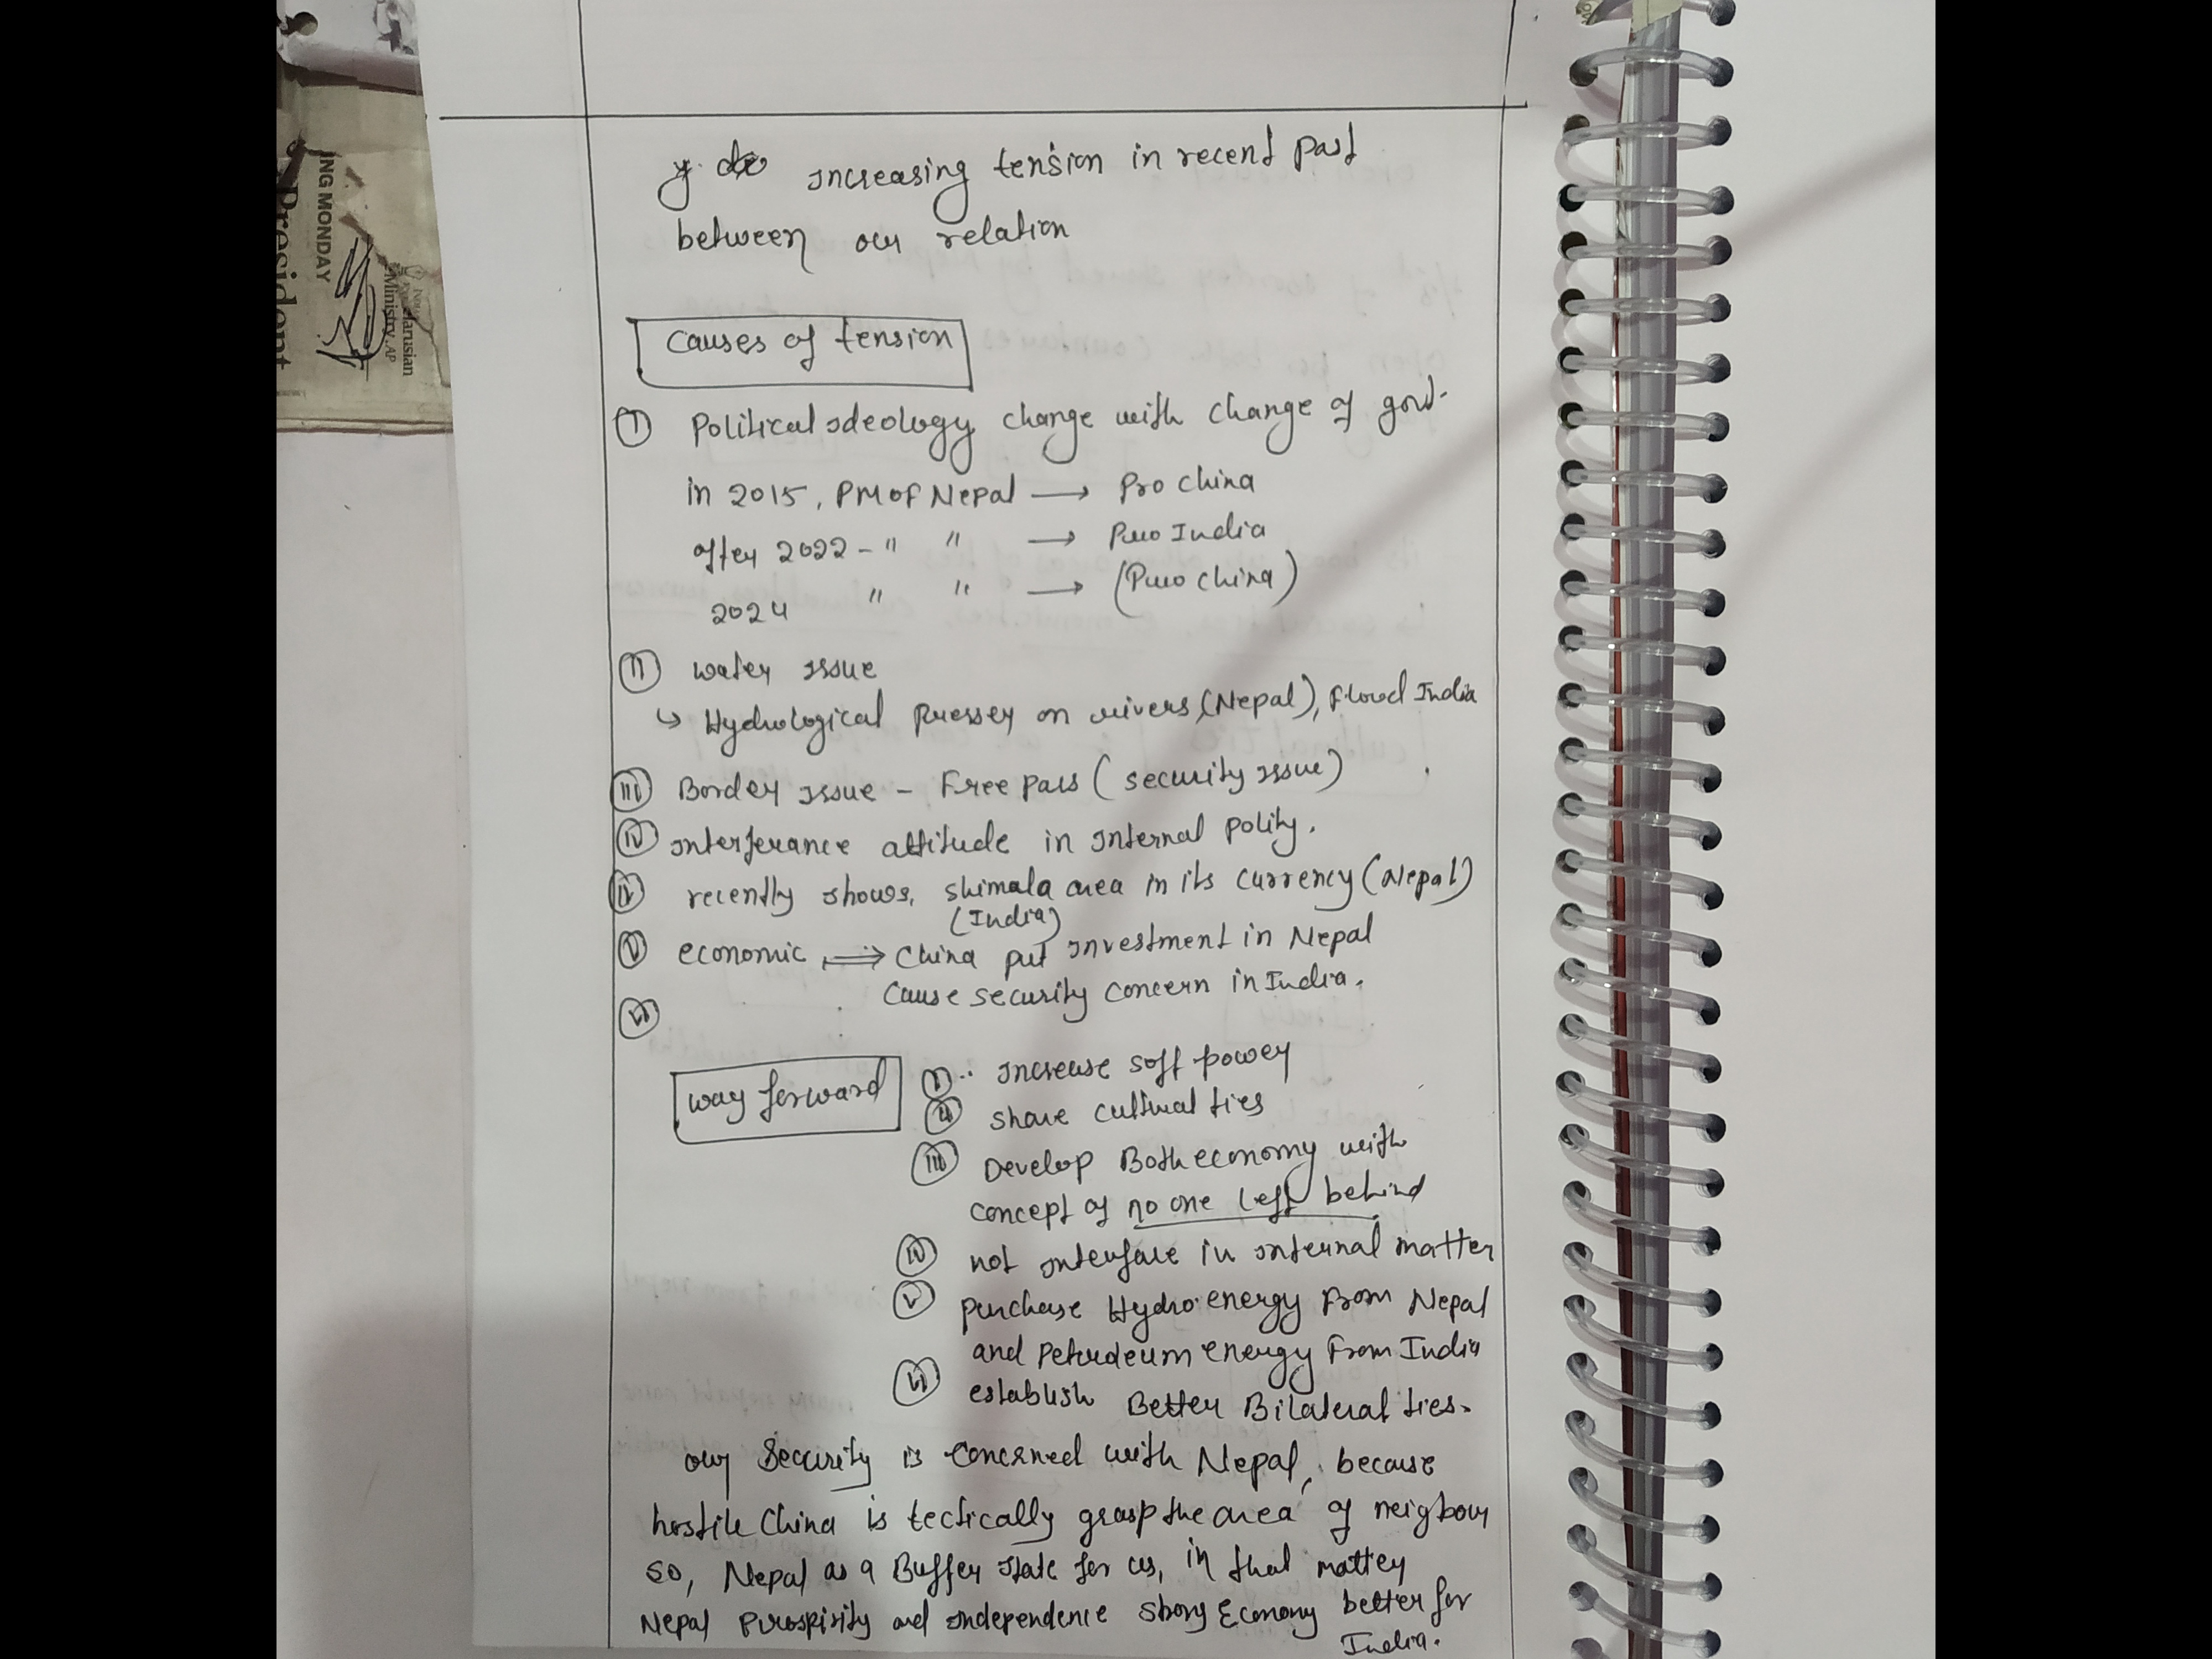 ING MONDAY
President
Ministry, AP
larusian
increasing tension in recent past
between our relation
causes of tension
(I) Political ideology change with change of govt.
in 2015, PM of Nepal → Pro China
after 2022 - " " → Pro India
2024 " " → (Pro China)
(II) water issue
↳ Hydrological on rivers (Nepal), flood India
(III) Border issue - Free pass (security issue)
(IV) interferance attitude in internal polity.
(IV) recently shows, shimala area in its currency (Nepal)
(India)
(V) economic ⇒ China put investment in Nepal
cause security concern in India.
(VI)
way forward
(I) increase soft power
(II) share cultural ties
(III) Develop Both economy with
concept of no one left behind
(IV) not interfare in internal matter
(V) purchase Hydro energy from Nepal
and Petroleum energy from India
(VI) establish Better Bilateral ties.
our Security is concerned with Nepal, because
hostile China is tectically grasp the area of neigbour
so, Nepal as a Buffer state for us, in that matter
Nepal Prospirity and independence strong Economy better for
India.